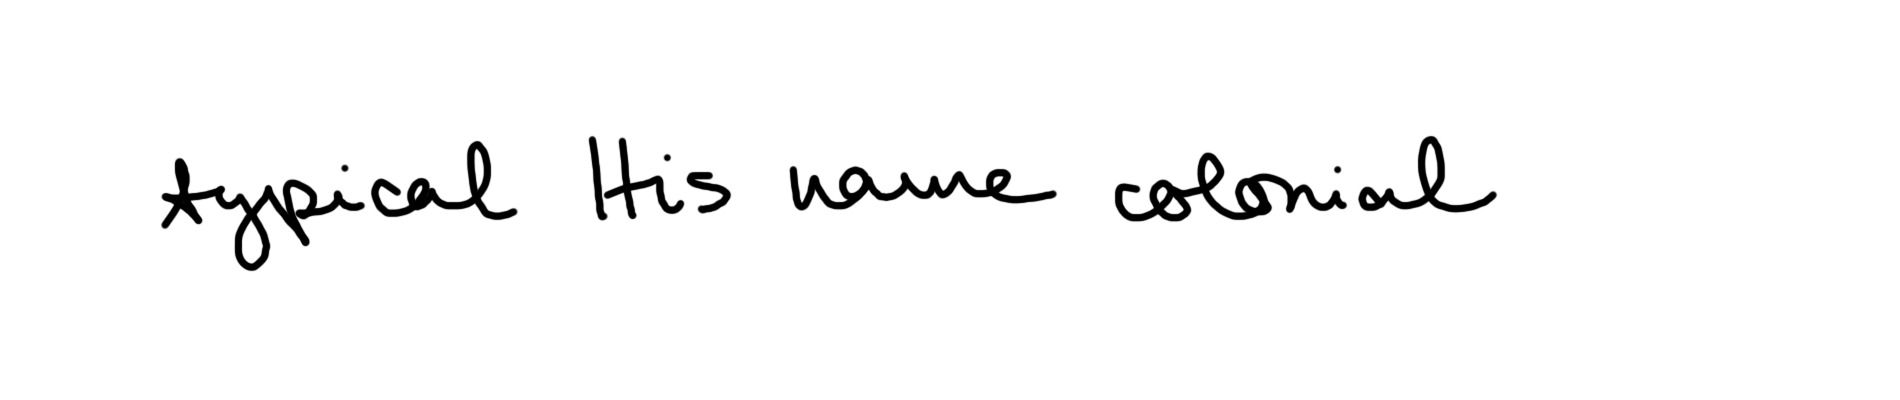 typical His name colonial